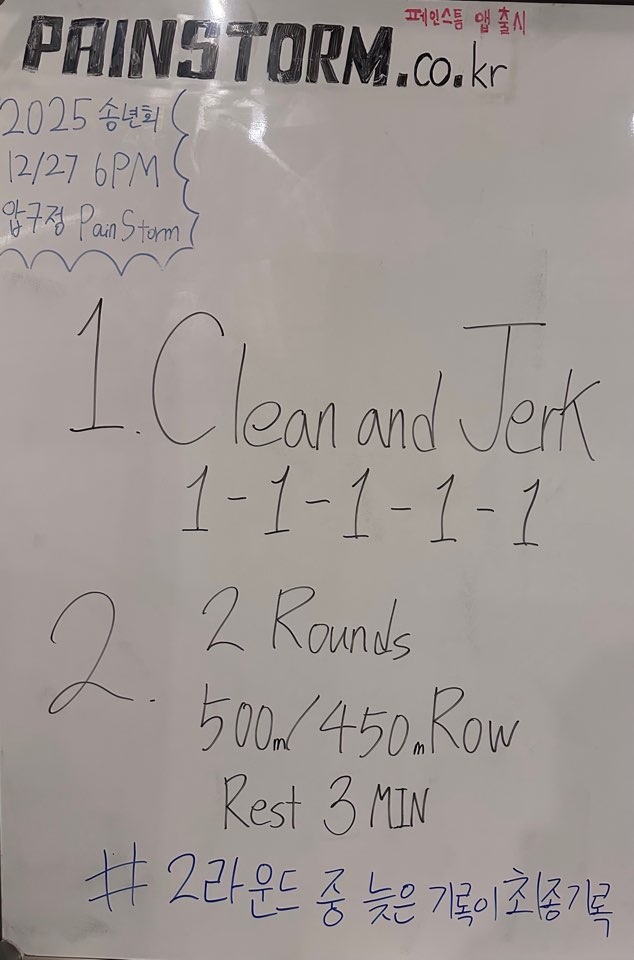 페인스톰 앱 출시
PAINSTORM.co.kr
2025 송년회
12/27 6PM
압구정 PainStorm
1. Clean and Jerk
1-1-1-1-1
2. 2 Rounds
500m/450m Row
Rest 3 MIN
# 2라운드 중 늦은 기록이 최종기록